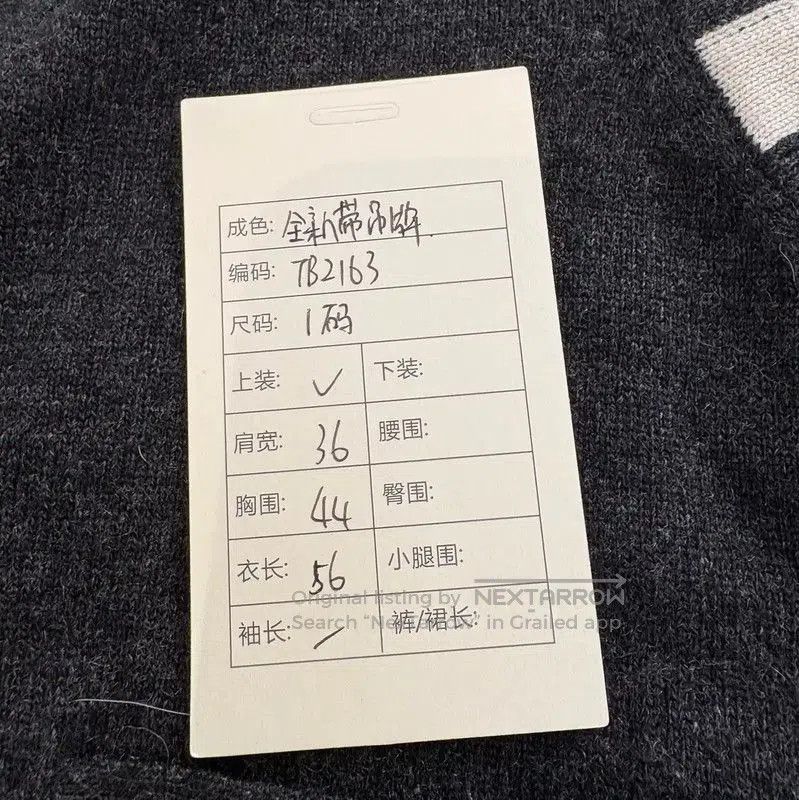 成色: 全新带吊牌.
编码: TB2163
尺码: 1码
上装: ✓ 下装:
肩宽: 36 腰围:
胸围: 44 臀围:
衣长: 56 小腿围:
Original listing by NEXTARROW
袖长: / 裤/裙长:
Search "NextArrow" in Grailed app